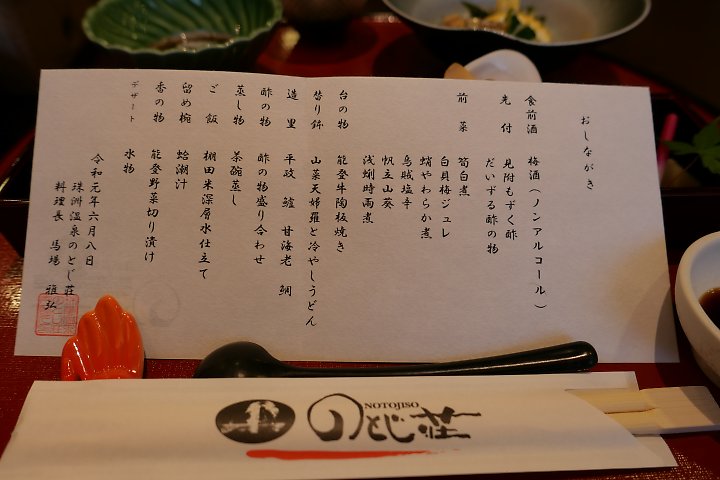 おしながき
食前酒 梅酒(ノンアルコール)
先付 見附もずく酢
だいずる酢の物
前菜 筍白煮
白貝梅ジュレ
蛸やわらか煮
烏賊塩辛
帆立山葵
浅蜊時雨煮
台の物 能登牛陶板焼き
替り鉢 山菜天婦羅と冷やしうどん
造里 平政 鱸 甘海老 鯛
酢の物 酢の物盛り合わせ
蒸し物 茶碗蒸し
ご飯 棚田米深層水仕立て
留め椀 蛤潮汁
香の物 能登野菜切り漬け
デザート 水物
令和元年六月八日
珠洲温泉のとじ荘
料理長 馬場 雅弘
NOTOJISO
のとじ荘